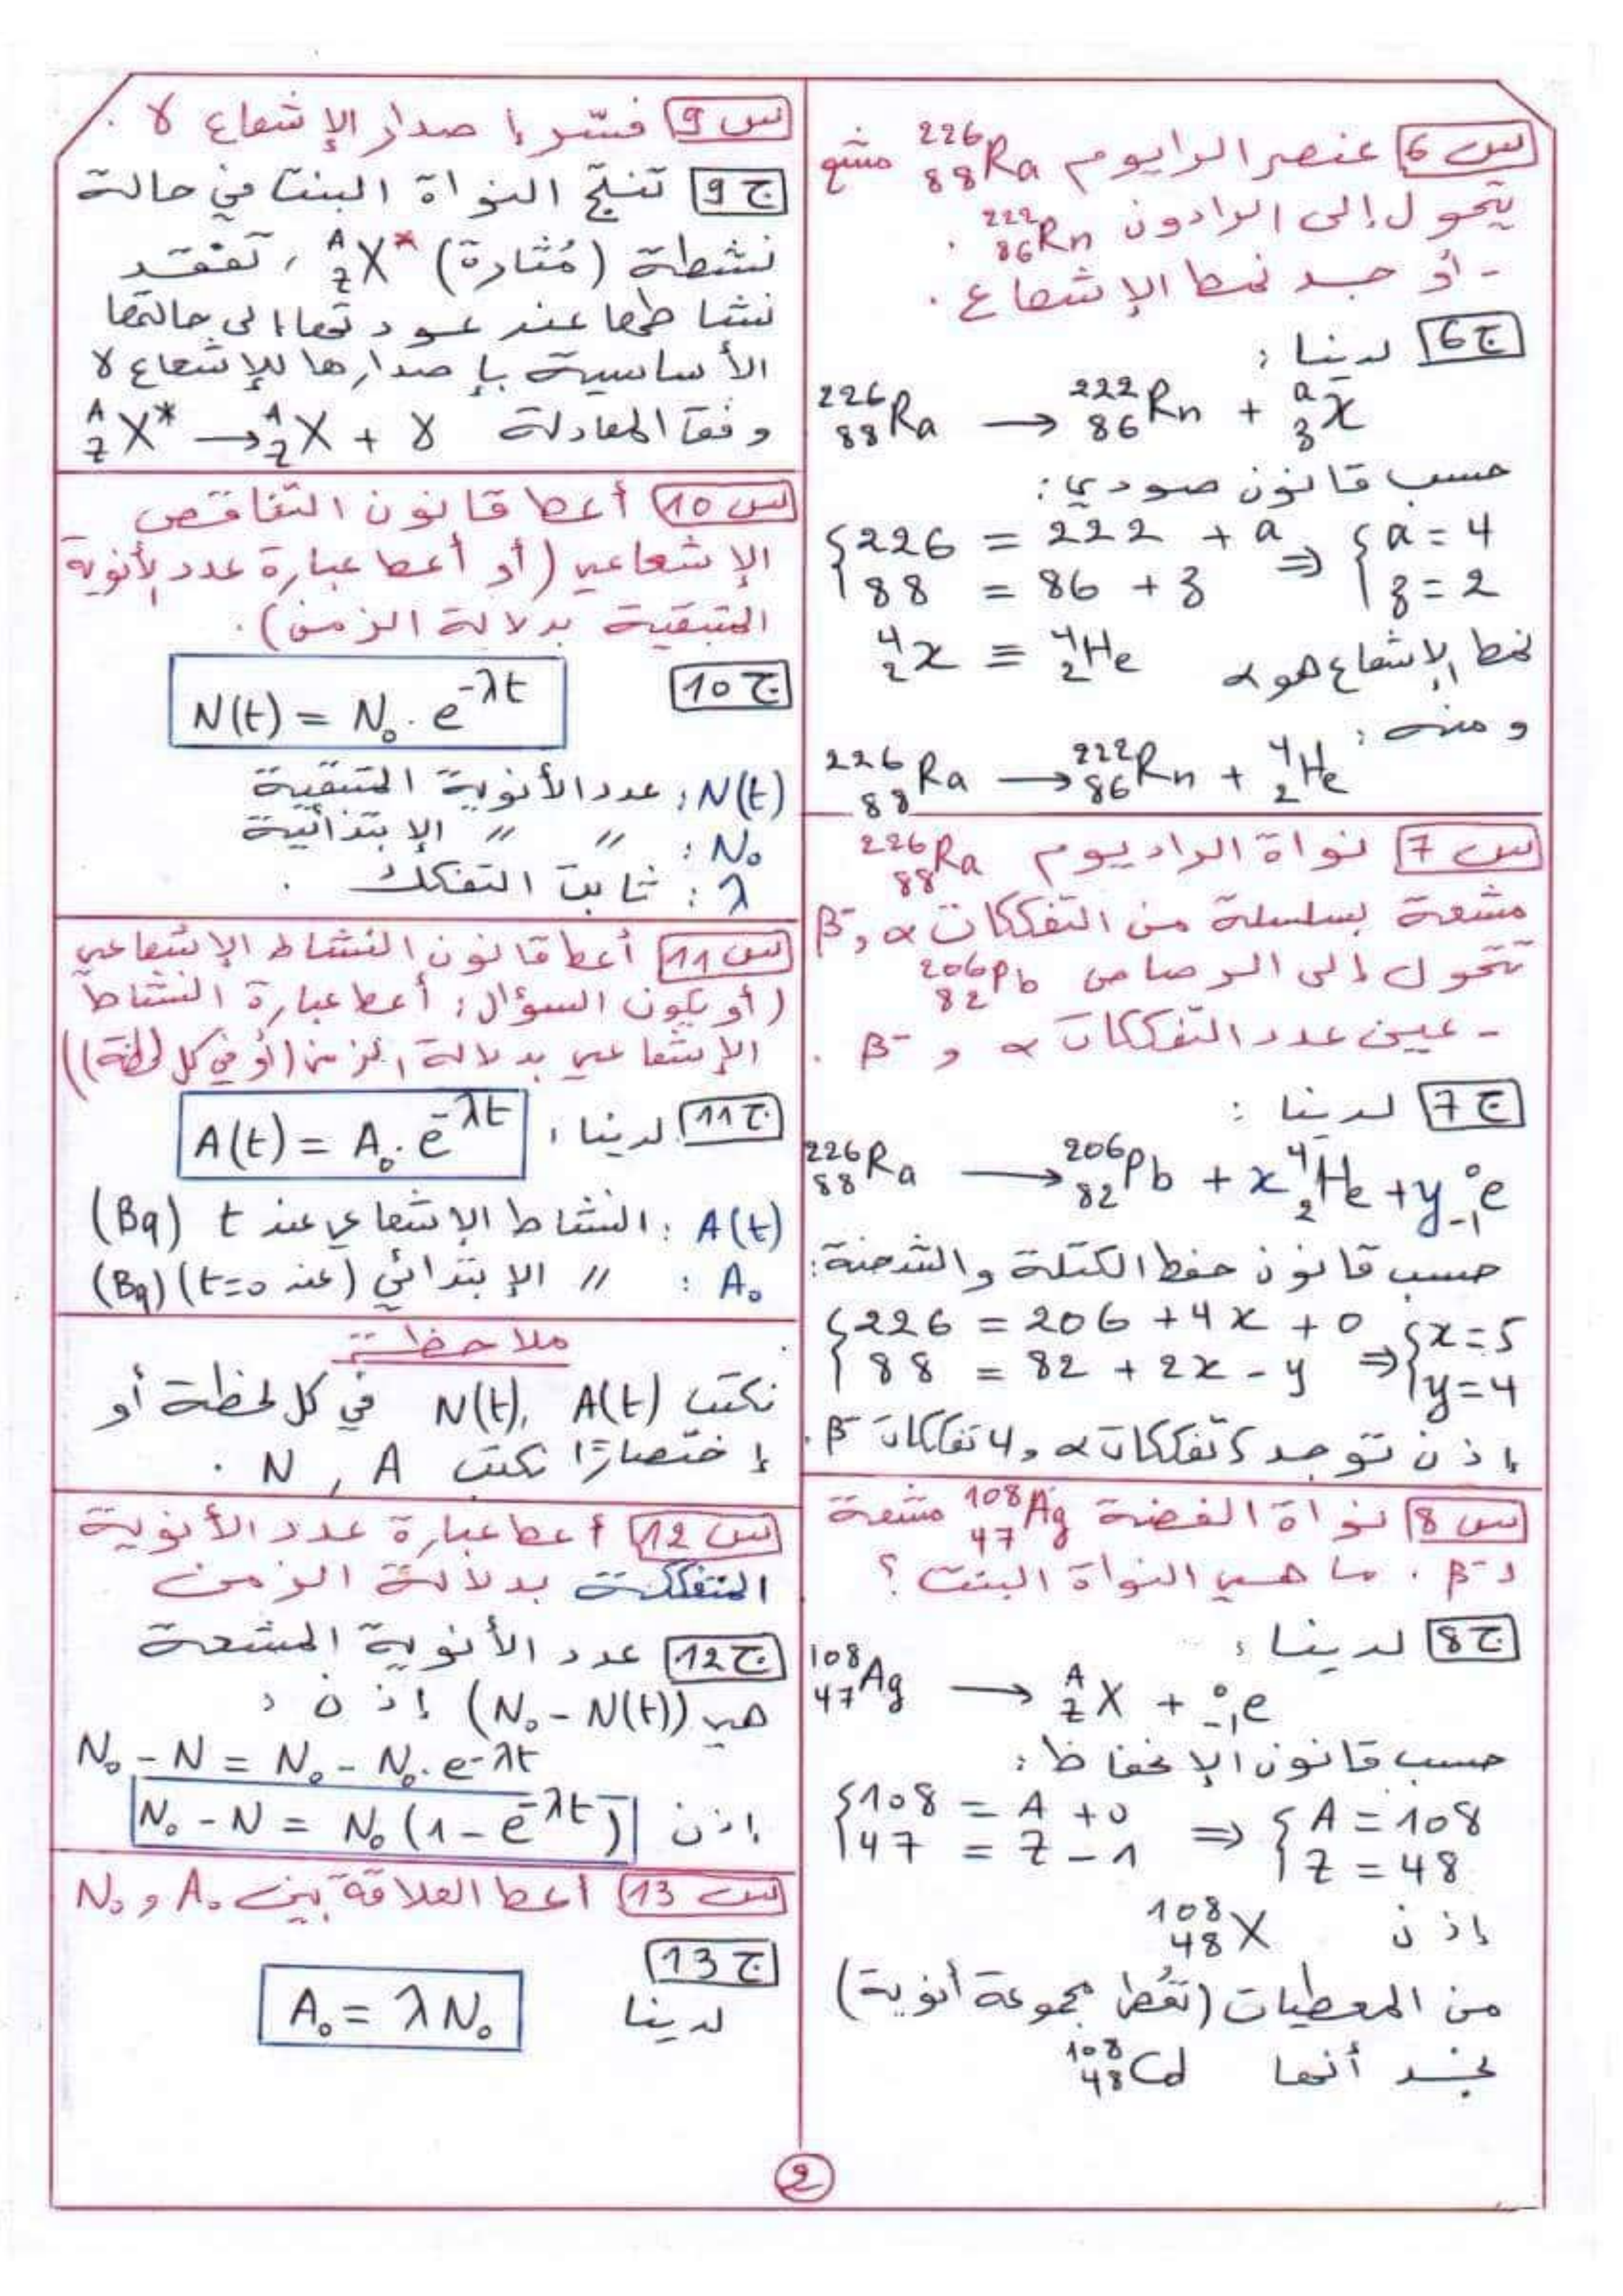 س 6 عنصر الرايوم ²²⁶₈₈Ra مشع
يتحول إلى الرادون ²²²₈₆Rn .
- أوجد نمط الإشعاع .
ج 6 لدينا :
²²⁶₈₈Ra → ²²²₈₆Rn + ᵃ₃x
حسب قانون صودي :
{226 = 222 + a ⇒ {a = 4
{88 = 86 + z {z = 2
⁴₂x ≡ ⁴₂He نمط الإشعاع هو α
ومنه :
²²⁶₈₈Ra → ²²²₈₆Rn + ⁴₂He
س 7 نواة الراديوم ²²⁶₈₈Ra
مشعة بسلسلة من التفككات α و β⁻
تتحول إلى الرصاص ²⁰⁶₈₂Pb
- عين عدد التفككات α و β⁻ .
ج 7 لدينا :
²²⁶₈₈Ra → ²⁰⁶₈₂Pb + x ⁴₂He + y ⁰₋₁e
حسب قانون حفظ الكتلة والشحنة :
{226 = 206 + 4x + 0 ⇒ {x = 5
{88 = 82 + 2x - y {y = 4
إذن توجد 5 تفككات α و 4 تفككات β⁻ .
س 8 نواة الفضة ¹⁰⁸₄₇Ag مشعة
لـ β⁻ . ما هي النواة البنت ؟
ج 8 لدينا :
¹⁰⁸₄₇Ag → ᴬ_ZX + ⁰₋₁e
حسب قانون الإنحفاظ :
{108 = A + 0 ⇒ {A = 108
{47 = Z - 1 {Z = 48
إذن ¹⁰⁸₄₈X
من المعطيات (تعطى مجموعة أنوية)
نجد أنها ¹⁰⁸₄₈Cd
س 9 فسّر إصدار الإشعاع γ .
ج 9 تنتج النواة البنت في حالة
نشطة (مُثارة) ᴬ_ZX* ، تفقد
نشاطها عند عودتها إلى حالتها
الأساسية بإصدارها للإشعاع γ
وفق المعادلة ᴬ_ZX* → ᴬ_ZX + γ
س 10 أعط قانون التناقص
الإشعاعي (أو أعط عبارة عدد الأنوية
المتبقية بدلالة الزمن) .
ج 10 N(t) = N₀ . e^-λt
N(t) : عدد الأنوية المتبقية
N₀ : " " الإبتدائية
λ : ثابت التفكك .
س 11 أعط قانون النشاط الإشعاعي
(أو يكون السؤال : أعط عبارة النشاط
الإشعاعي بدلالة الزمن (أو في كل لحظة))
ج 11 لدينا : A(t) = A₀ . e^-λt
A(t) : النشاط الإشعاعي عند t (Bq)
A₀ : " الإبتدائي (عند t=0) (Bq)
ملاحظة
نكتب A(t) ، N(t) في كل لحظة أو
إختصارًا نكتب A ، N .
س 12 أعط عبارة عدد الأنوية
المتفككة بدلالة الزمن
ج 12 عدد الأنوية المشعة
هي (N₀ - N(t)) إذن :
N₀ - N = N₀ - N₀ . e^-λt
إذن N₀ - N = N₀ (1 - e^-λt)
س 13 أعط العلاقة بين A₀ و N₀
ج 13
لدينا A₀ = λ N₀
2